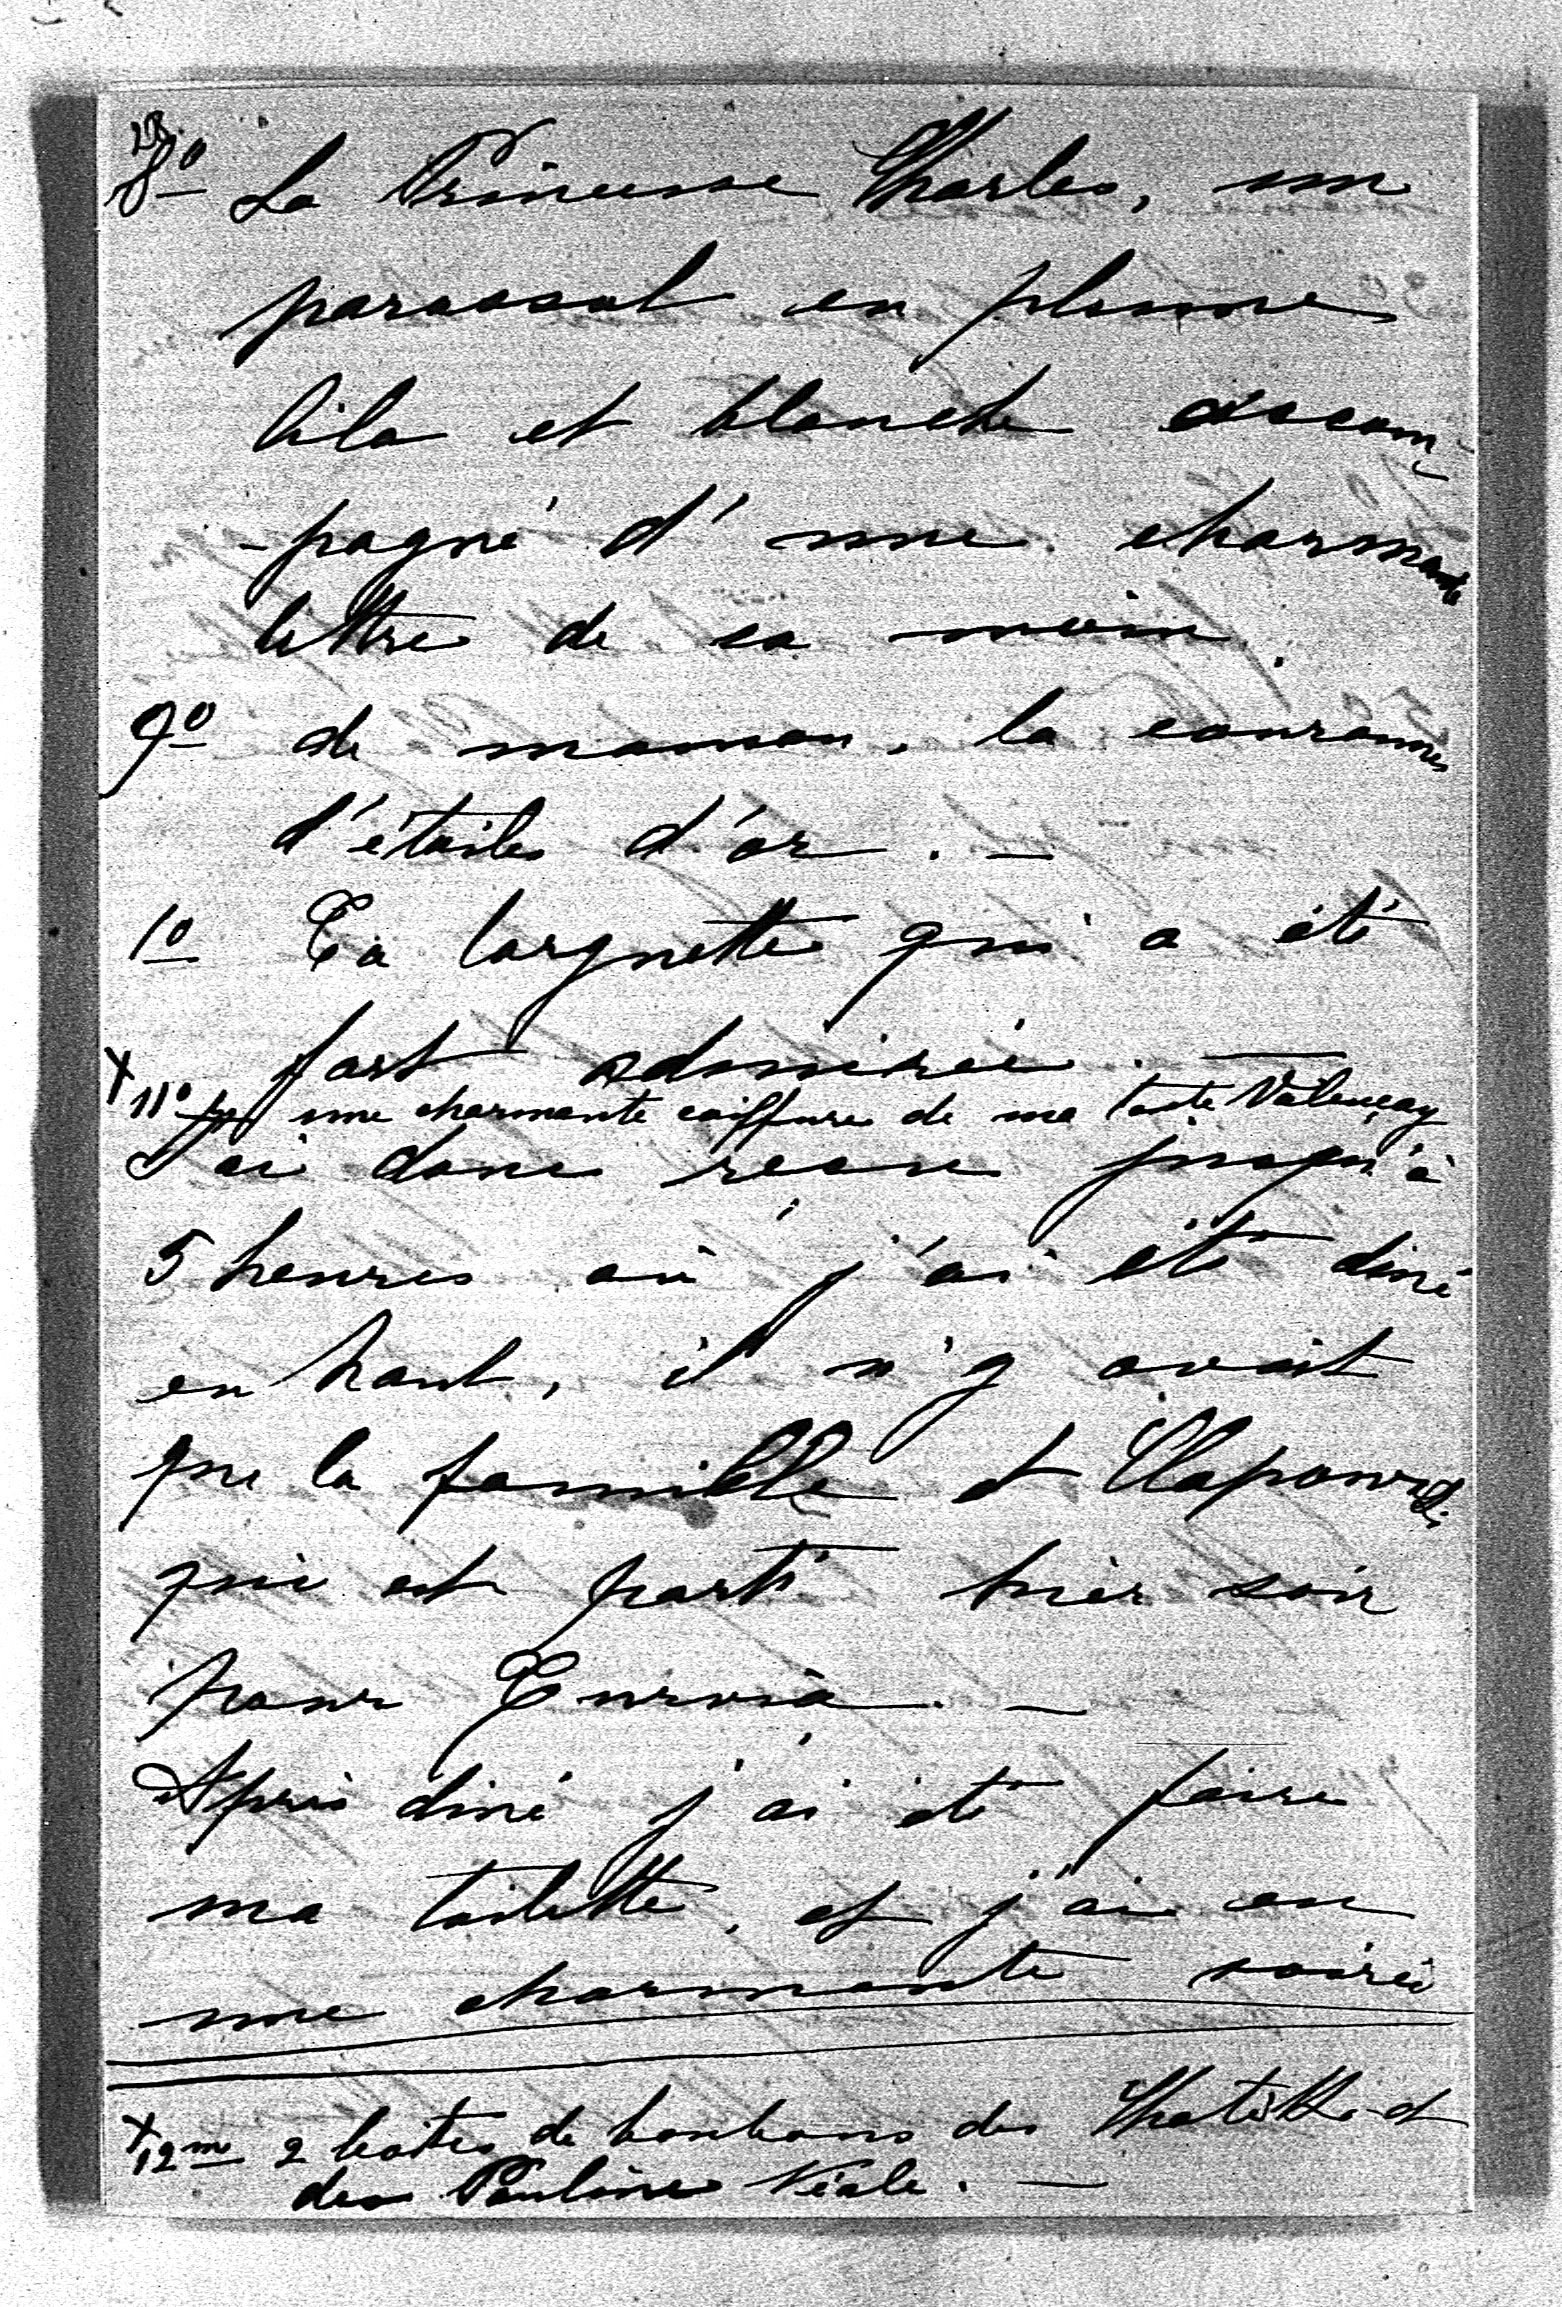 8º La Princesse Charles, un
parassol en plume
lila et blanche accom-
-pagné d'une charmante
lettre de sa main.
9º de maman, la couronne
d'étoiles d'or. —
1º Ta lorgnette qui a été
fort admirée. —
x 11º une charmante coiffure de ma tante Valençay
J'ai donc recu jusqu'à
5 heures où j'ai été diné
en haut, il n'y avait
que la famille et
qui est parti hier soir
pour
Après diné j'ai été faire
ma toilette, et j'ai eu
une charmante soirée
x 12m 2 boites de bonbons des et
des Pauline Néale. —